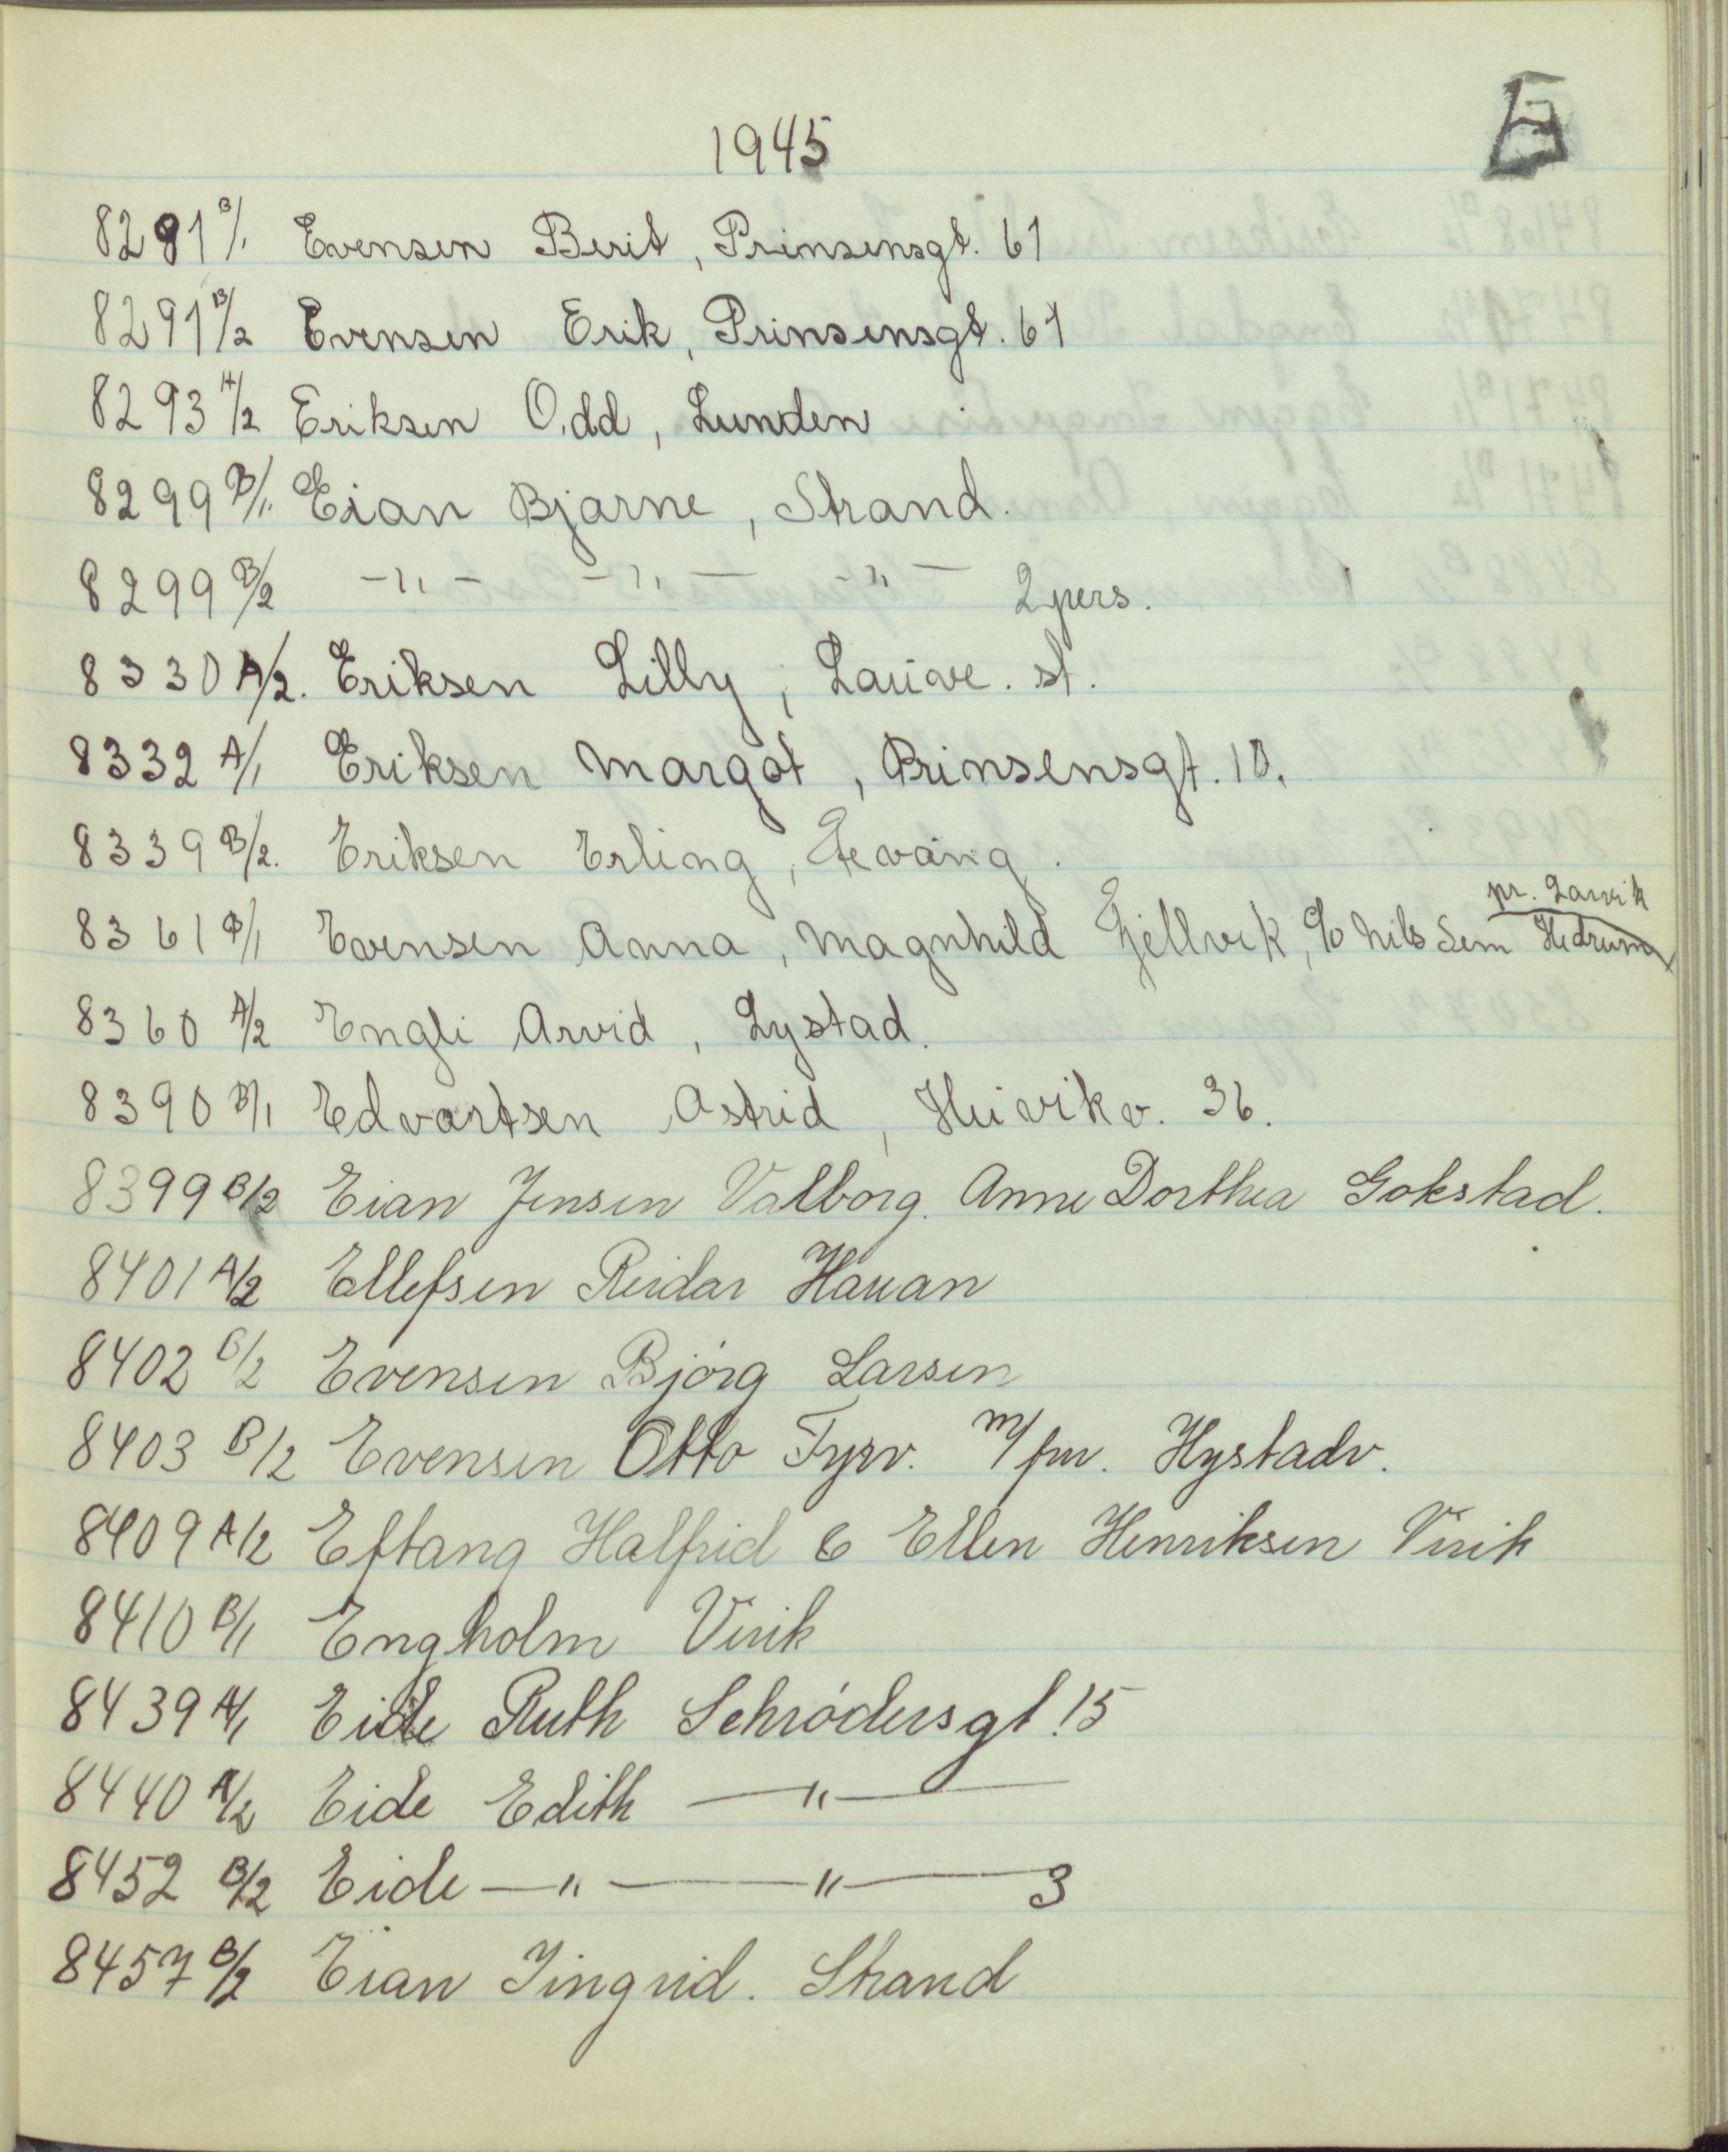 E
1945
8291 B/1 Evensen Berit, Prinsensgt. 61
8291 B/2 Evensen Erik, Prinsensgt. 61
8293 A/2 Eriksen Odd, Lunden
8299 B/1. Eian Bjarne, Strand.
8299 B/2 -"- -"- -"- 2 pers.
8330 A/2. Eriksen Lilly, Lauve. st.
8332 A/1 Eriksen Margot, Prinsensgt. 10.
8339 B/2. Eriksen Erling, Fevang.
pr. Larvik
8361 B/1 Evensen Anna, Magnhild Gjellvik, c/o Nils Sem Hedrum
8360 A/2 Engli Arvid, Lystad.
8390 B/1 Edvartsen Astrid, Heivikv. 36.
8399 B/2 Eian Jensen Valborg. Anne Dorthea Gokstad.
8401 A/2 Ellefsen Reidar Hauan
8402 B/2 Evensen Bjørg Larsen
8403 B/2 Evensen Otto Fyrv. m/fru. Hystadv.
8409 A/2 Eftang Halfrid & Ellen Henriksen Virik
8410 B/1 Engholm Virik
8439 A/1 Eide Ruth Schrødersgt. 15
8440 A/2 Eide Edith —"—
8452 B/2 Eide —"— —"— 3
8457 B/2 Eian Jingrid. Strand